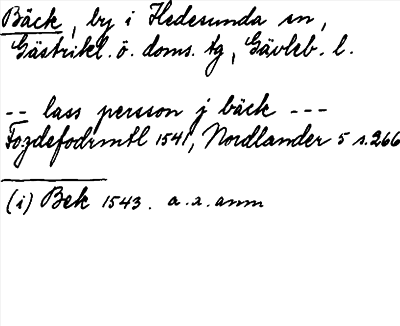 Bäck, by i Hedesunda sn,
Gästrikl. ö. doms. tg, Gävleb. l.
-- lass persson j bäck ---
Fogdefodrmtl 1541, Nordlander 5 s. 266
(i) Bek 1543. a. a. anm